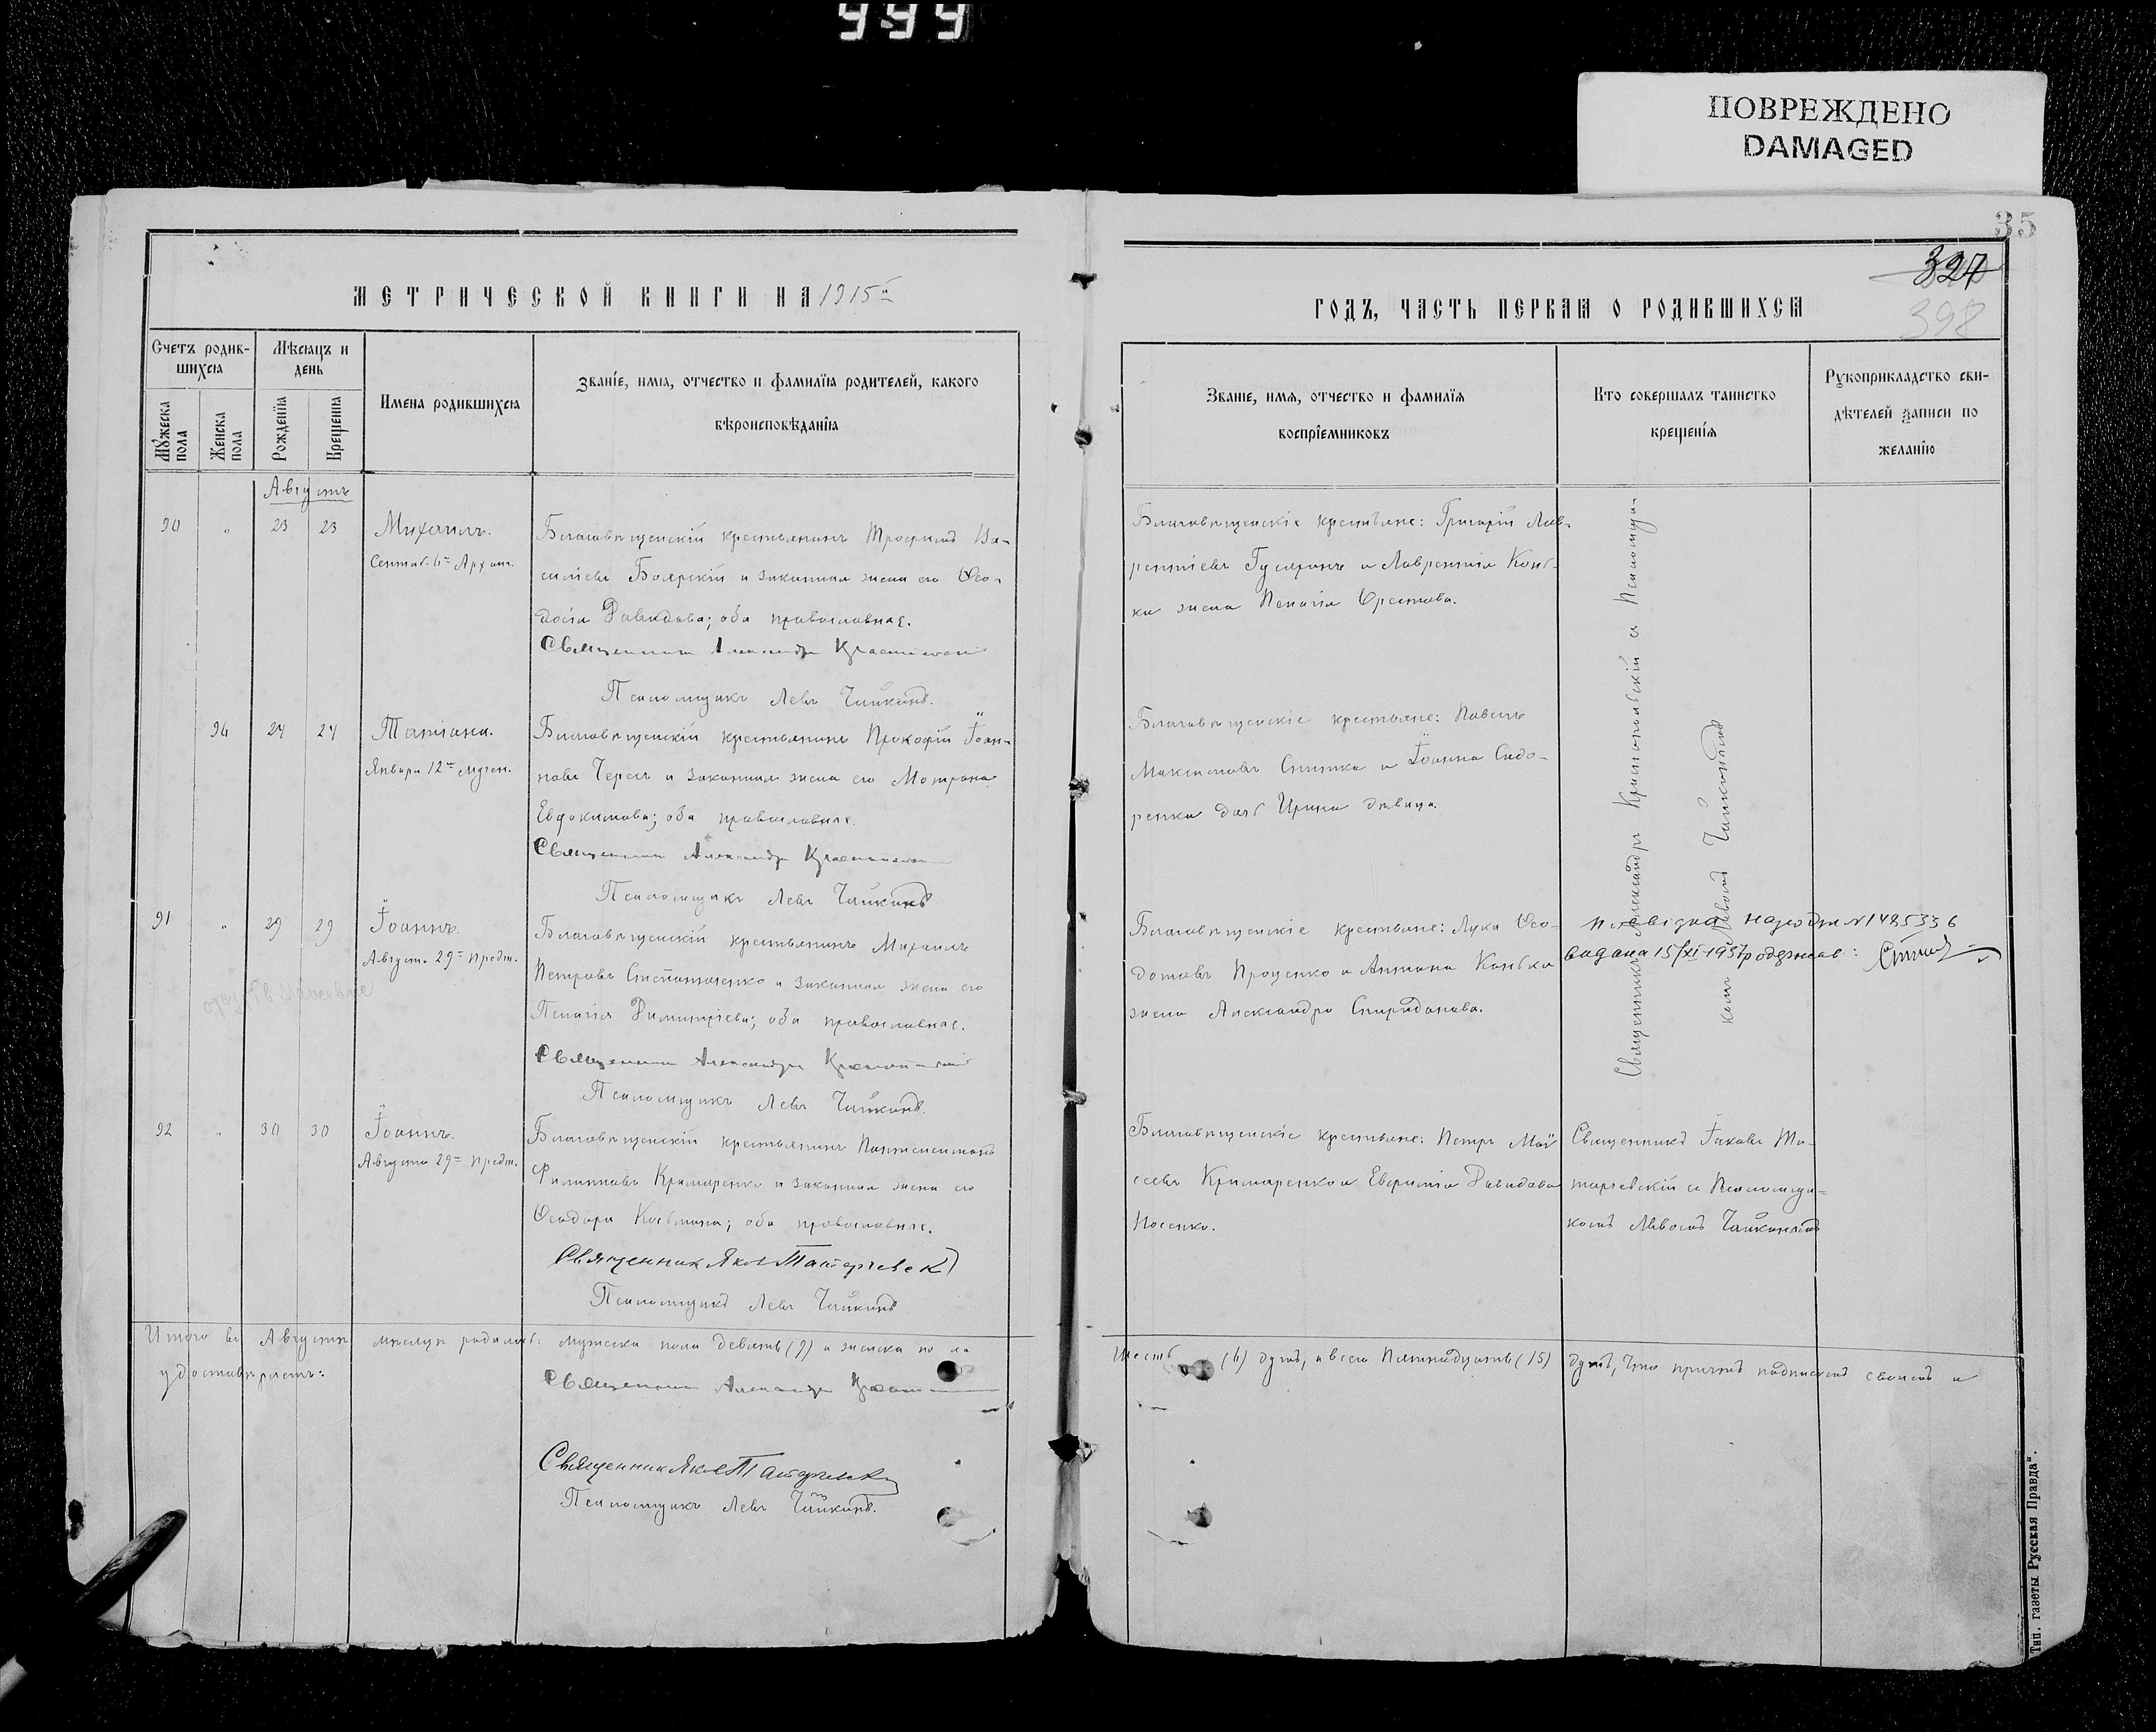 999
ПОВРЕЖДЕНО
DAMAGED
35
327
398
МЕТРИЧЕСКОЙ КНИГИ НА 1915й
ГОДЪ, ЧАСТЬ ПЕРВАЯ О РОДИВШИХСЯ
Счетъ родив-
шихся
Мѣсяцъ и
день
Мужеска
пола
Женска
пола
Рожденїя
Крещенїя
Имена родившихся
Званїе, имя, отчество и фамилїя родителей, какого
вѣроисповѣданїя
Званїе, имя, отчество и фамилїя
воспрїемниковъ
Кто совершалъ таинство
крещенїя
Рукоприкладство сви-
дѣтелей записи по
желанїю
Августъ
90 " 23 23
Михаилъ.
Сентяб. 6го Архан.
Благовѣщенскій крестьянинъ Трофимъ Ва-
силіевъ Боярскій и законная жена его Ѳео-
досія Давидова; оба православные.
Священникъ Александръ Краснопольскій
Псаломщикъ Левъ Чайкинъ.
Благовѣщенскіе крестьяне: Григорій Лав-
рентіевъ Гусаринъ и Лаврентія Конь-
ка жена Пелагія Орестова.
Священникъ Александръ Краснопольскій съ Псаломщи-
комъ Львомъ Чайкинымъ
94 27 27
Татіана.
Января 12го мучен.
Благовѣщенскій крестьянинъ Прокофій Іоан-
новъ Черепъ и законная жена его Матрона
Евдокимова; оба православные.
Священникъ Александръ Краснопольскій
Псаломщикъ Левъ Чайкинъ
Благовѣщенскіе крестьяне: Павелъ
Максимовъ и Іоанна Сидо-
ренка дочь Ирина дѣвица.
91 " 29 29
Іоаннъ.
Август. 29го предт.
Благовѣщенскій крестьянинъ Михаилъ
Петровъ Степаненко и законная жена его
Пелагія Димитріева; оба православные.
Священникъ Александръ Краснопольскій
Псаломщикъ Левъ Чайкинъ.
Благовѣщенскіе крестьяне: Лука Ѳео-
дотовъ Проценко и Антона Конька
жена Александра Спиридонова.
народж N 1485336
видана 15/XI-1937 одержав:
92 " 30 30
Іоаннъ.
Августа 29го предт.
Благовѣщенскій крестьянинъ Пантелеимонъ
Филипповъ Крамаренко и законная жена его
Ѳеодора Косьмина; оба православные.
Священник Яков Татарчевск
Псаломщикъ Левъ Чайкинъ
Благовѣщенскіе крестьяне: Петръ Мои-
сеевъ Крамаренко и Евфимія Давидова
Носенко.
Священникъ Іаковъ Та-
тарчевскій съ Псаломщи-
комъ Львомъ Чайкинымъ
Итого въ Августѣ мѣсяцѣ родилось: мужска пола девять (9) и женска пола
шесть (6) душъ, а всего пятнадцать (15) душъ, что причтъ подписомъ своимъ и
удостовѣряетъ:
Священникъ Александръ Краснопольскій
Священник Яков Татарчевск
Псаломщикъ Левъ Чайкинъ.
Тип. газеты „Русская Правда“.